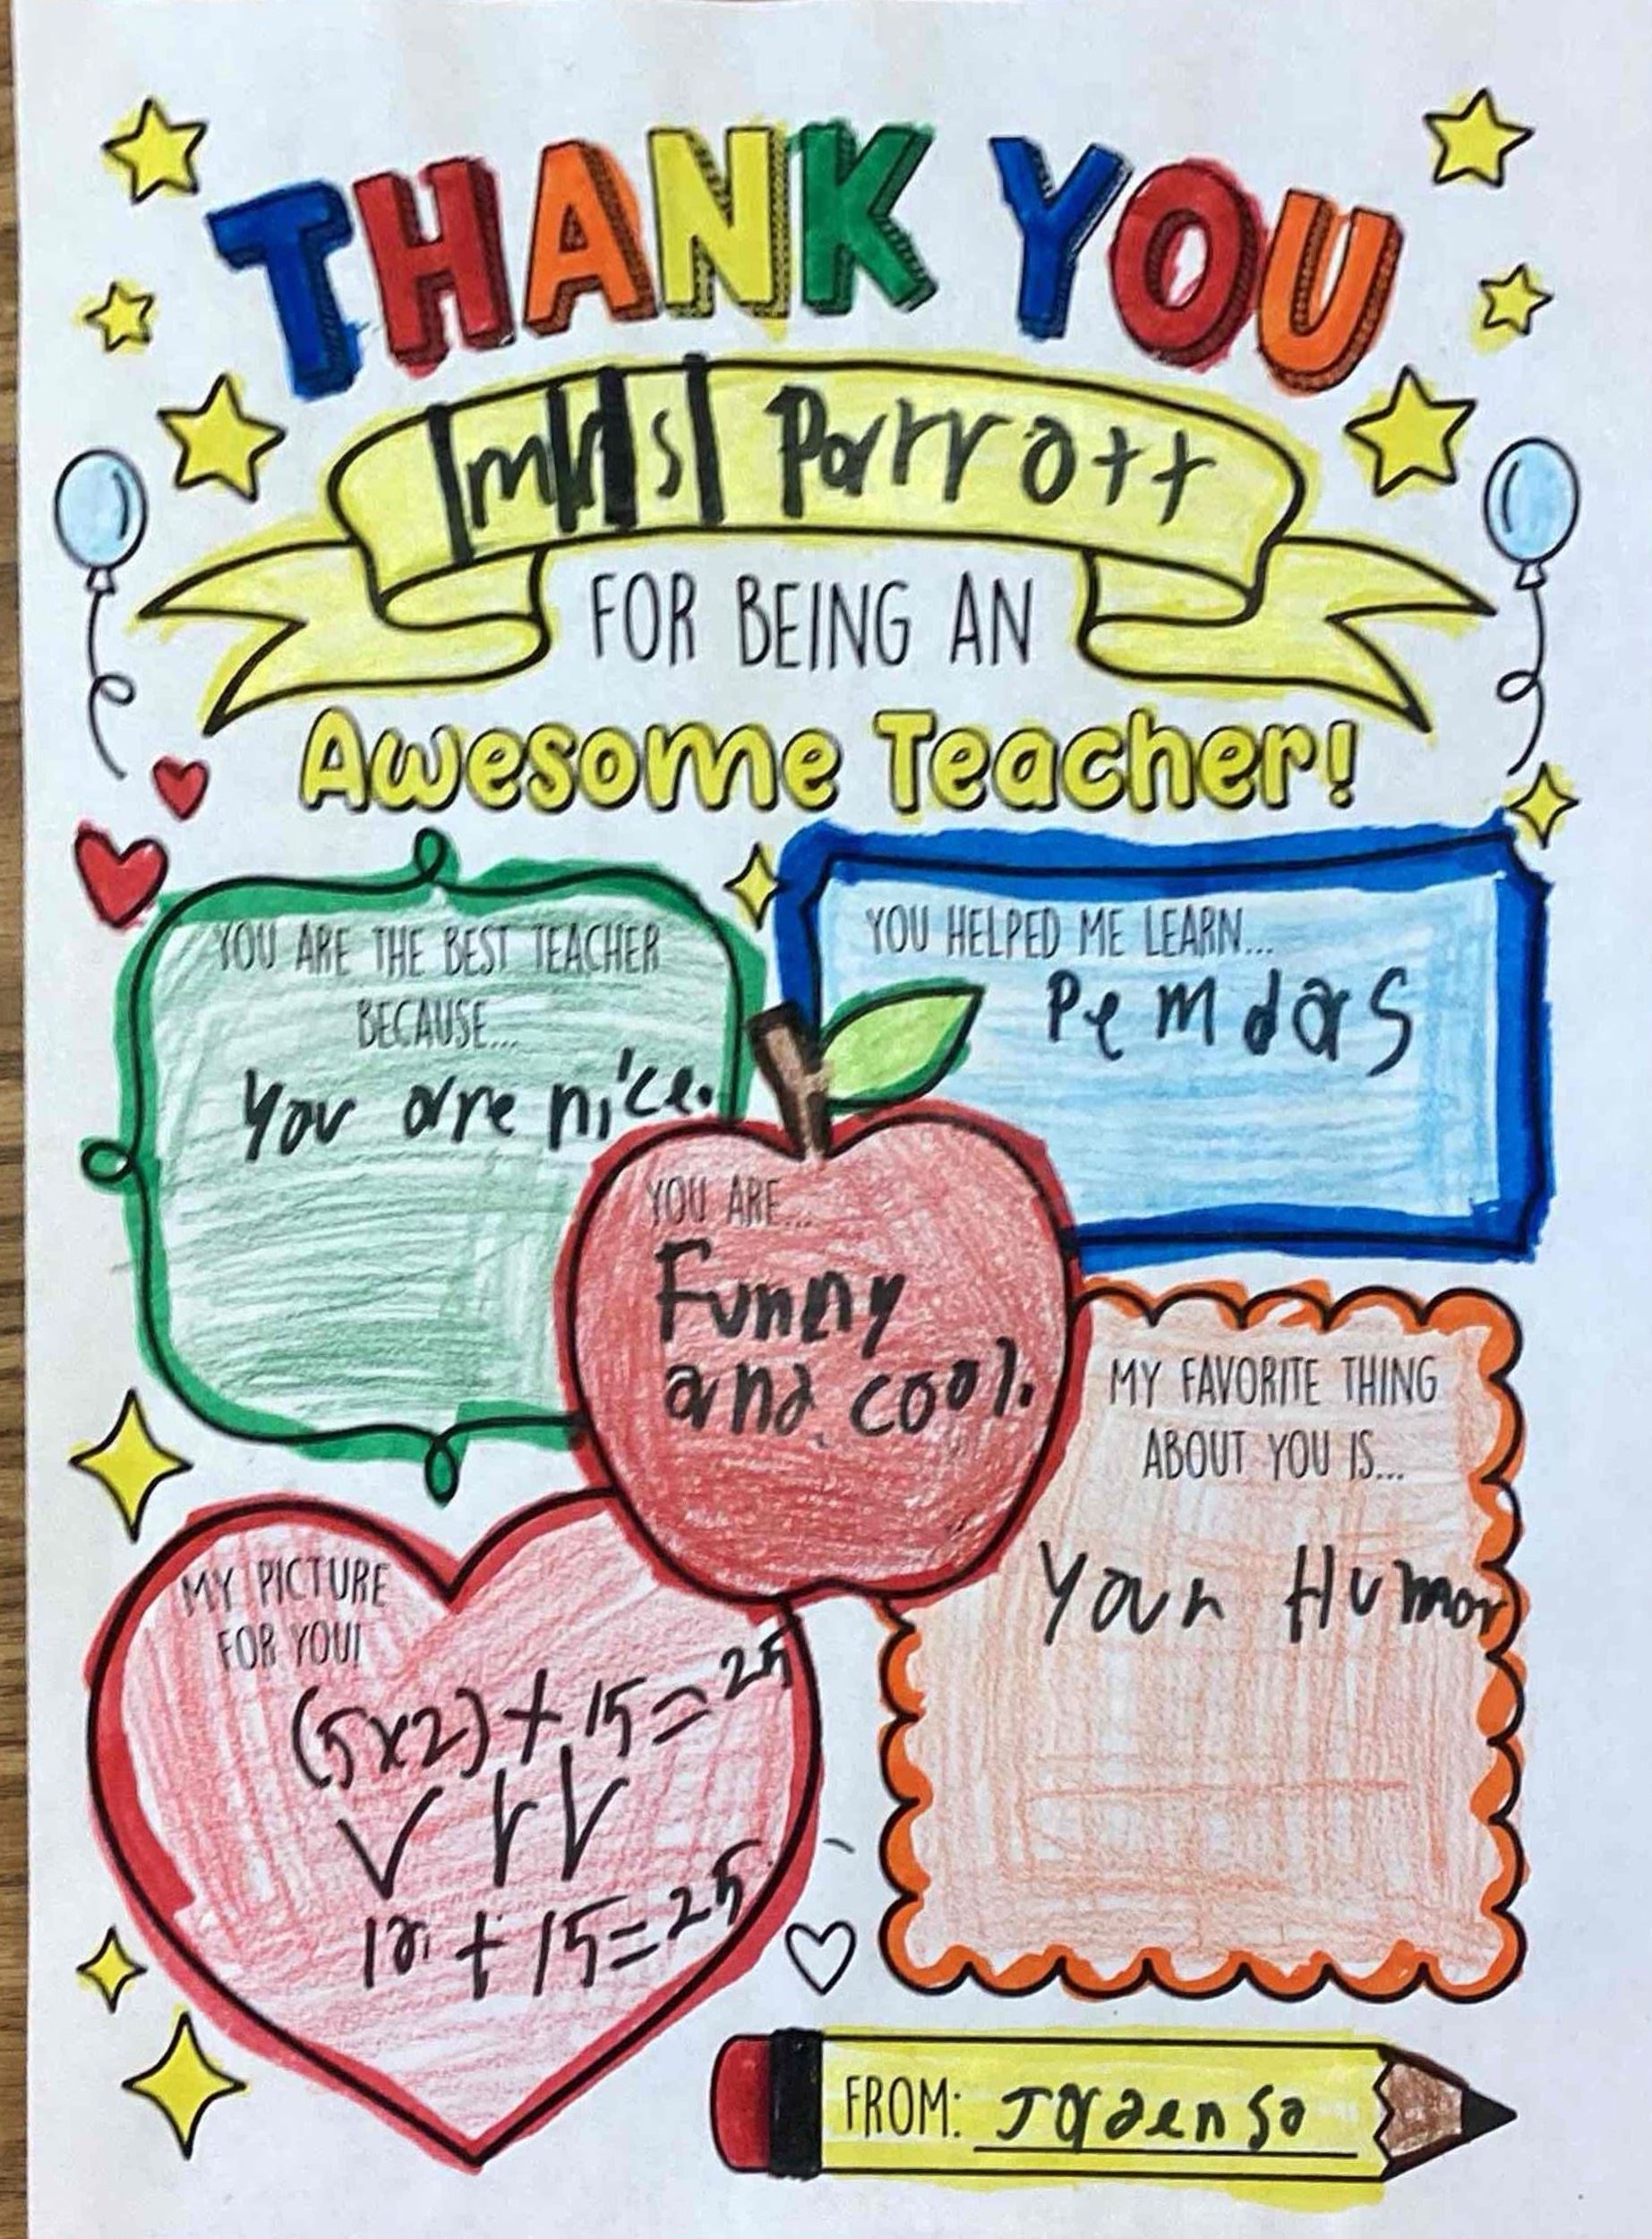 THANK YOU
Mrs Parrott
FOR BEING AN
Awesome Teacher!
YOU ARE THE BEST TEACHER
BECAUSE...
You are nice.
YOU HELPED ME LEARN...
Pemdas
YOU ARE...
Funny
and cool.
MY FAVORITE THING
ABOUT YOU IS...
Your Humor
MY PICTURE
FOR YOU!
(5x2)+15=25
10+15=25
FROM: